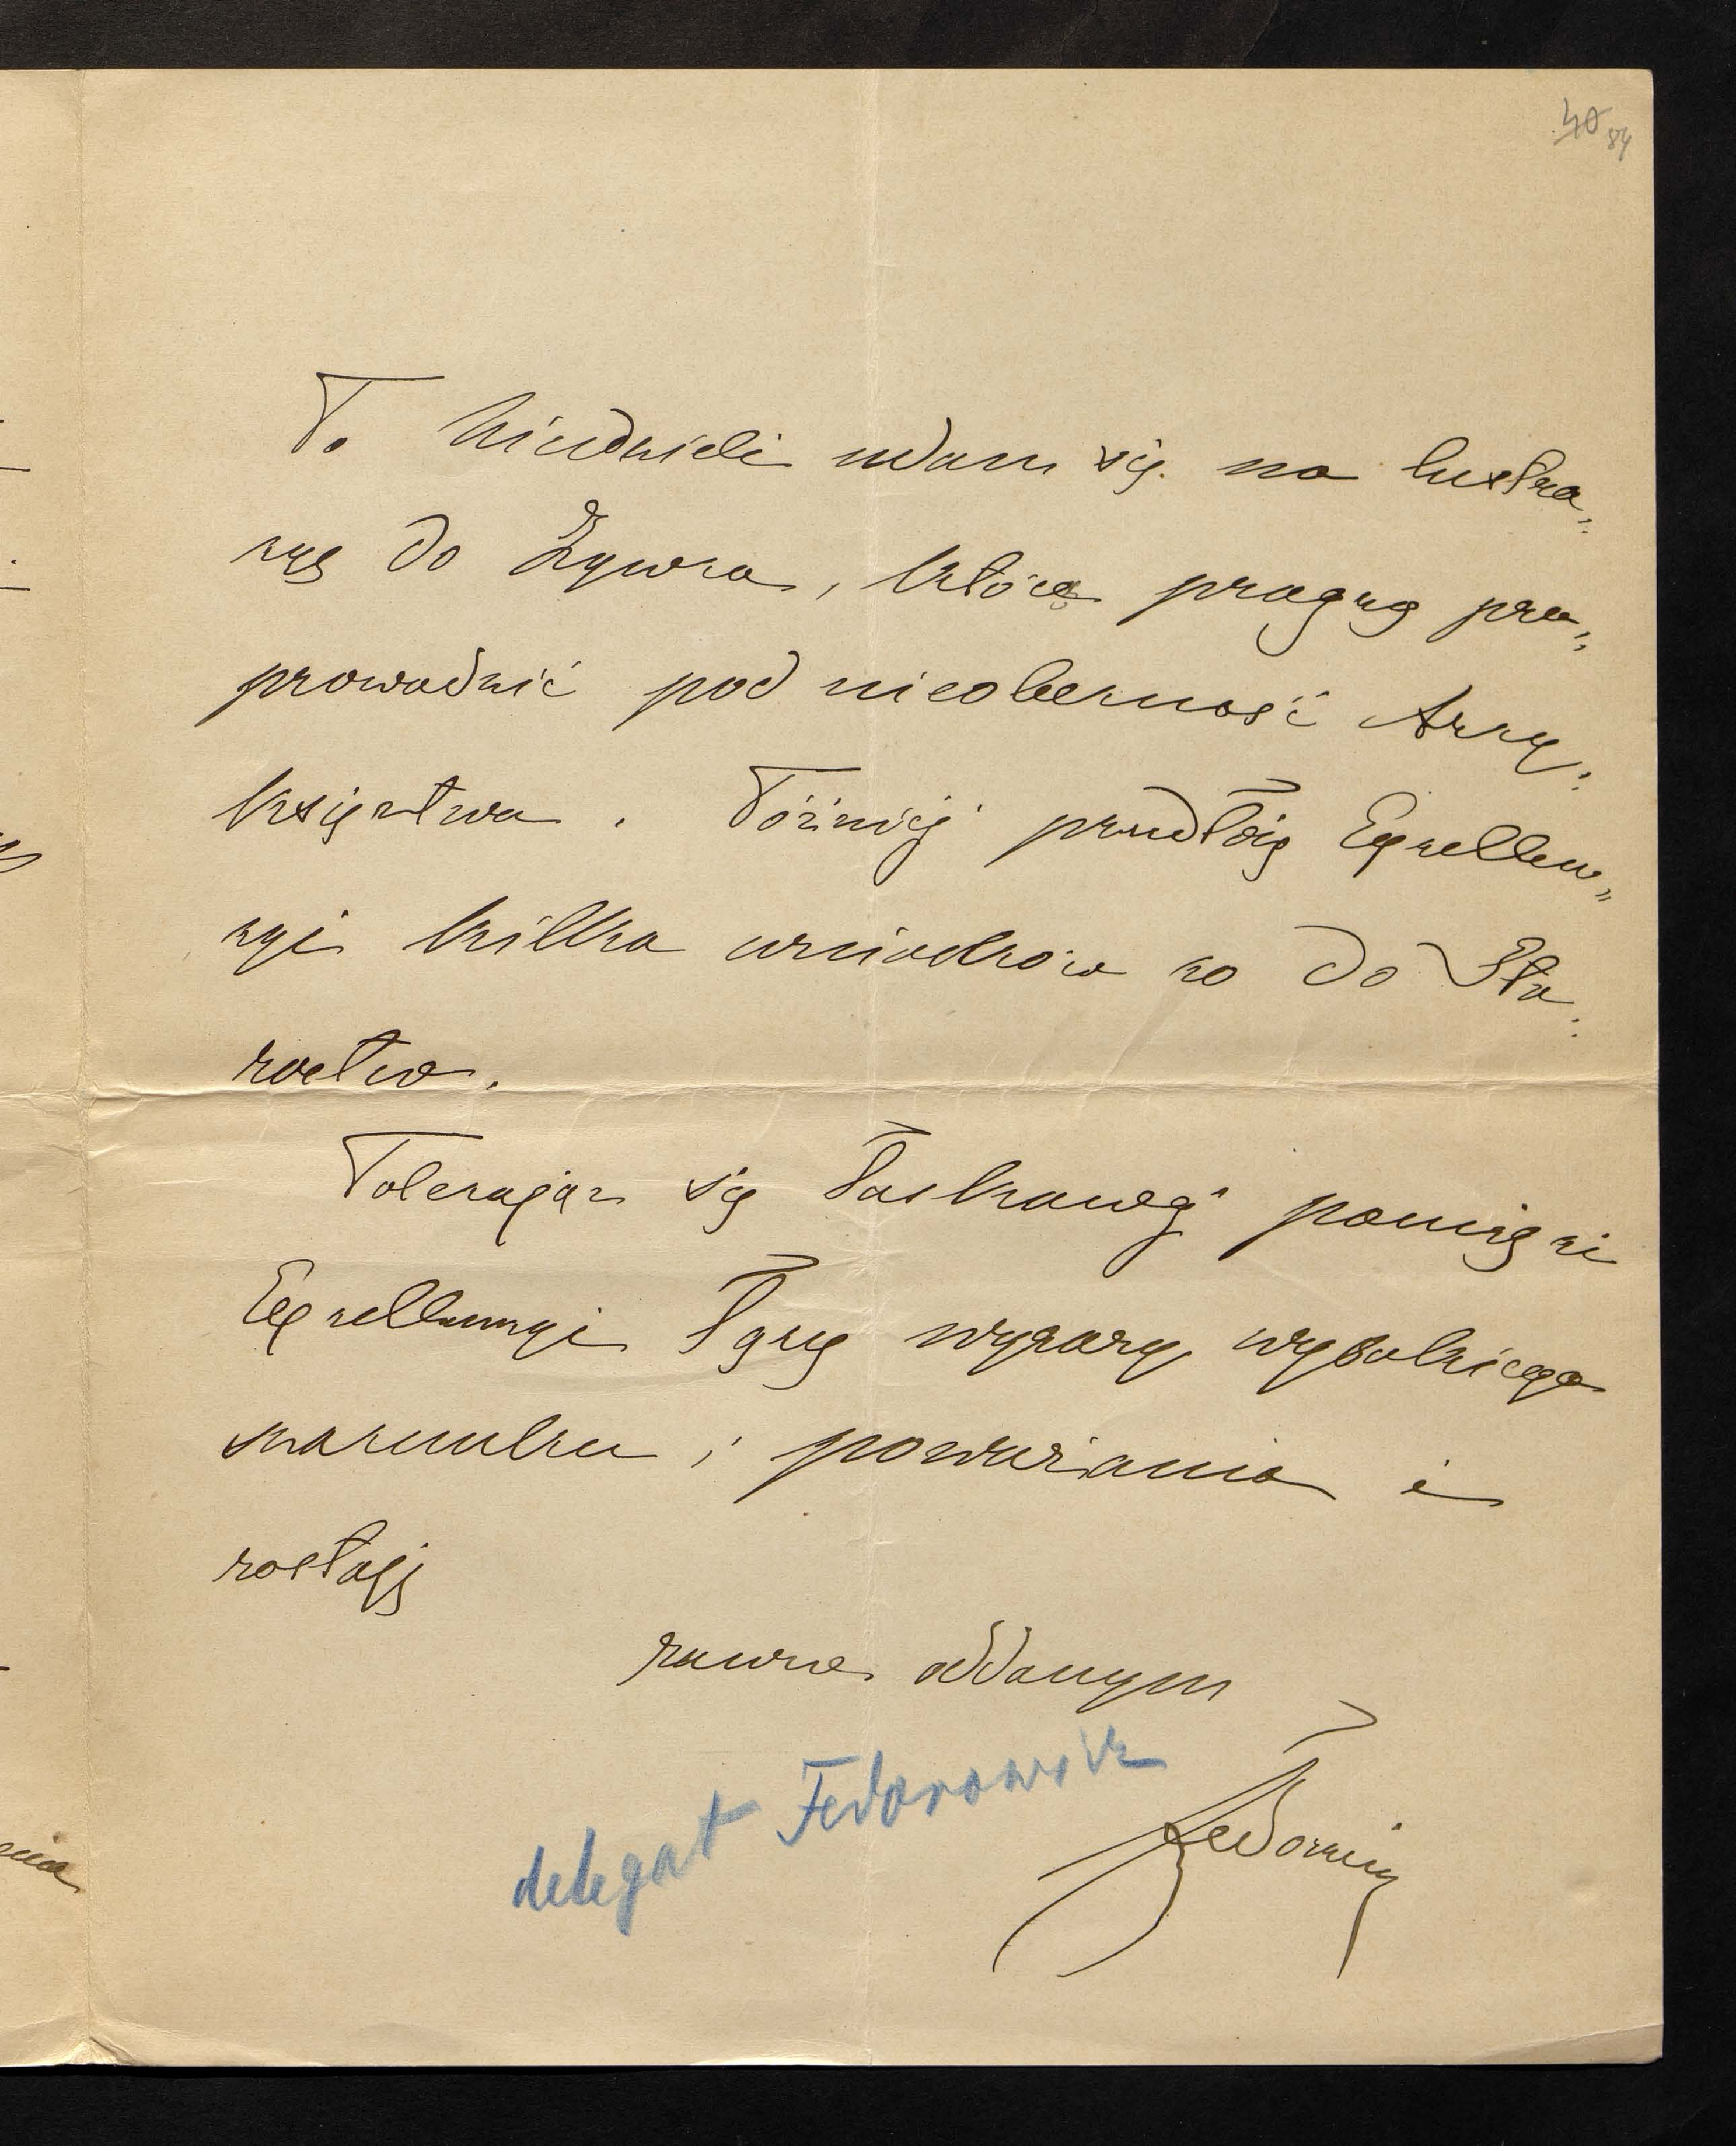 40 84
Po Niedzieli udam się na lustra„
cyę do Żywca, którą pragnę prze„
prowadzić pod nieobecność Arcy„
księstwa. Później przedłożę Excellen„
cyi kilka wniosków co do Sta„
rostwa.
Polecając się łaskawej pamięci
Excellencyi łączę wyrazy wysokiego
szacunku i poważania i
zostaję
zawsze oddanym
Fedorowicz
delegat Fedorowicz